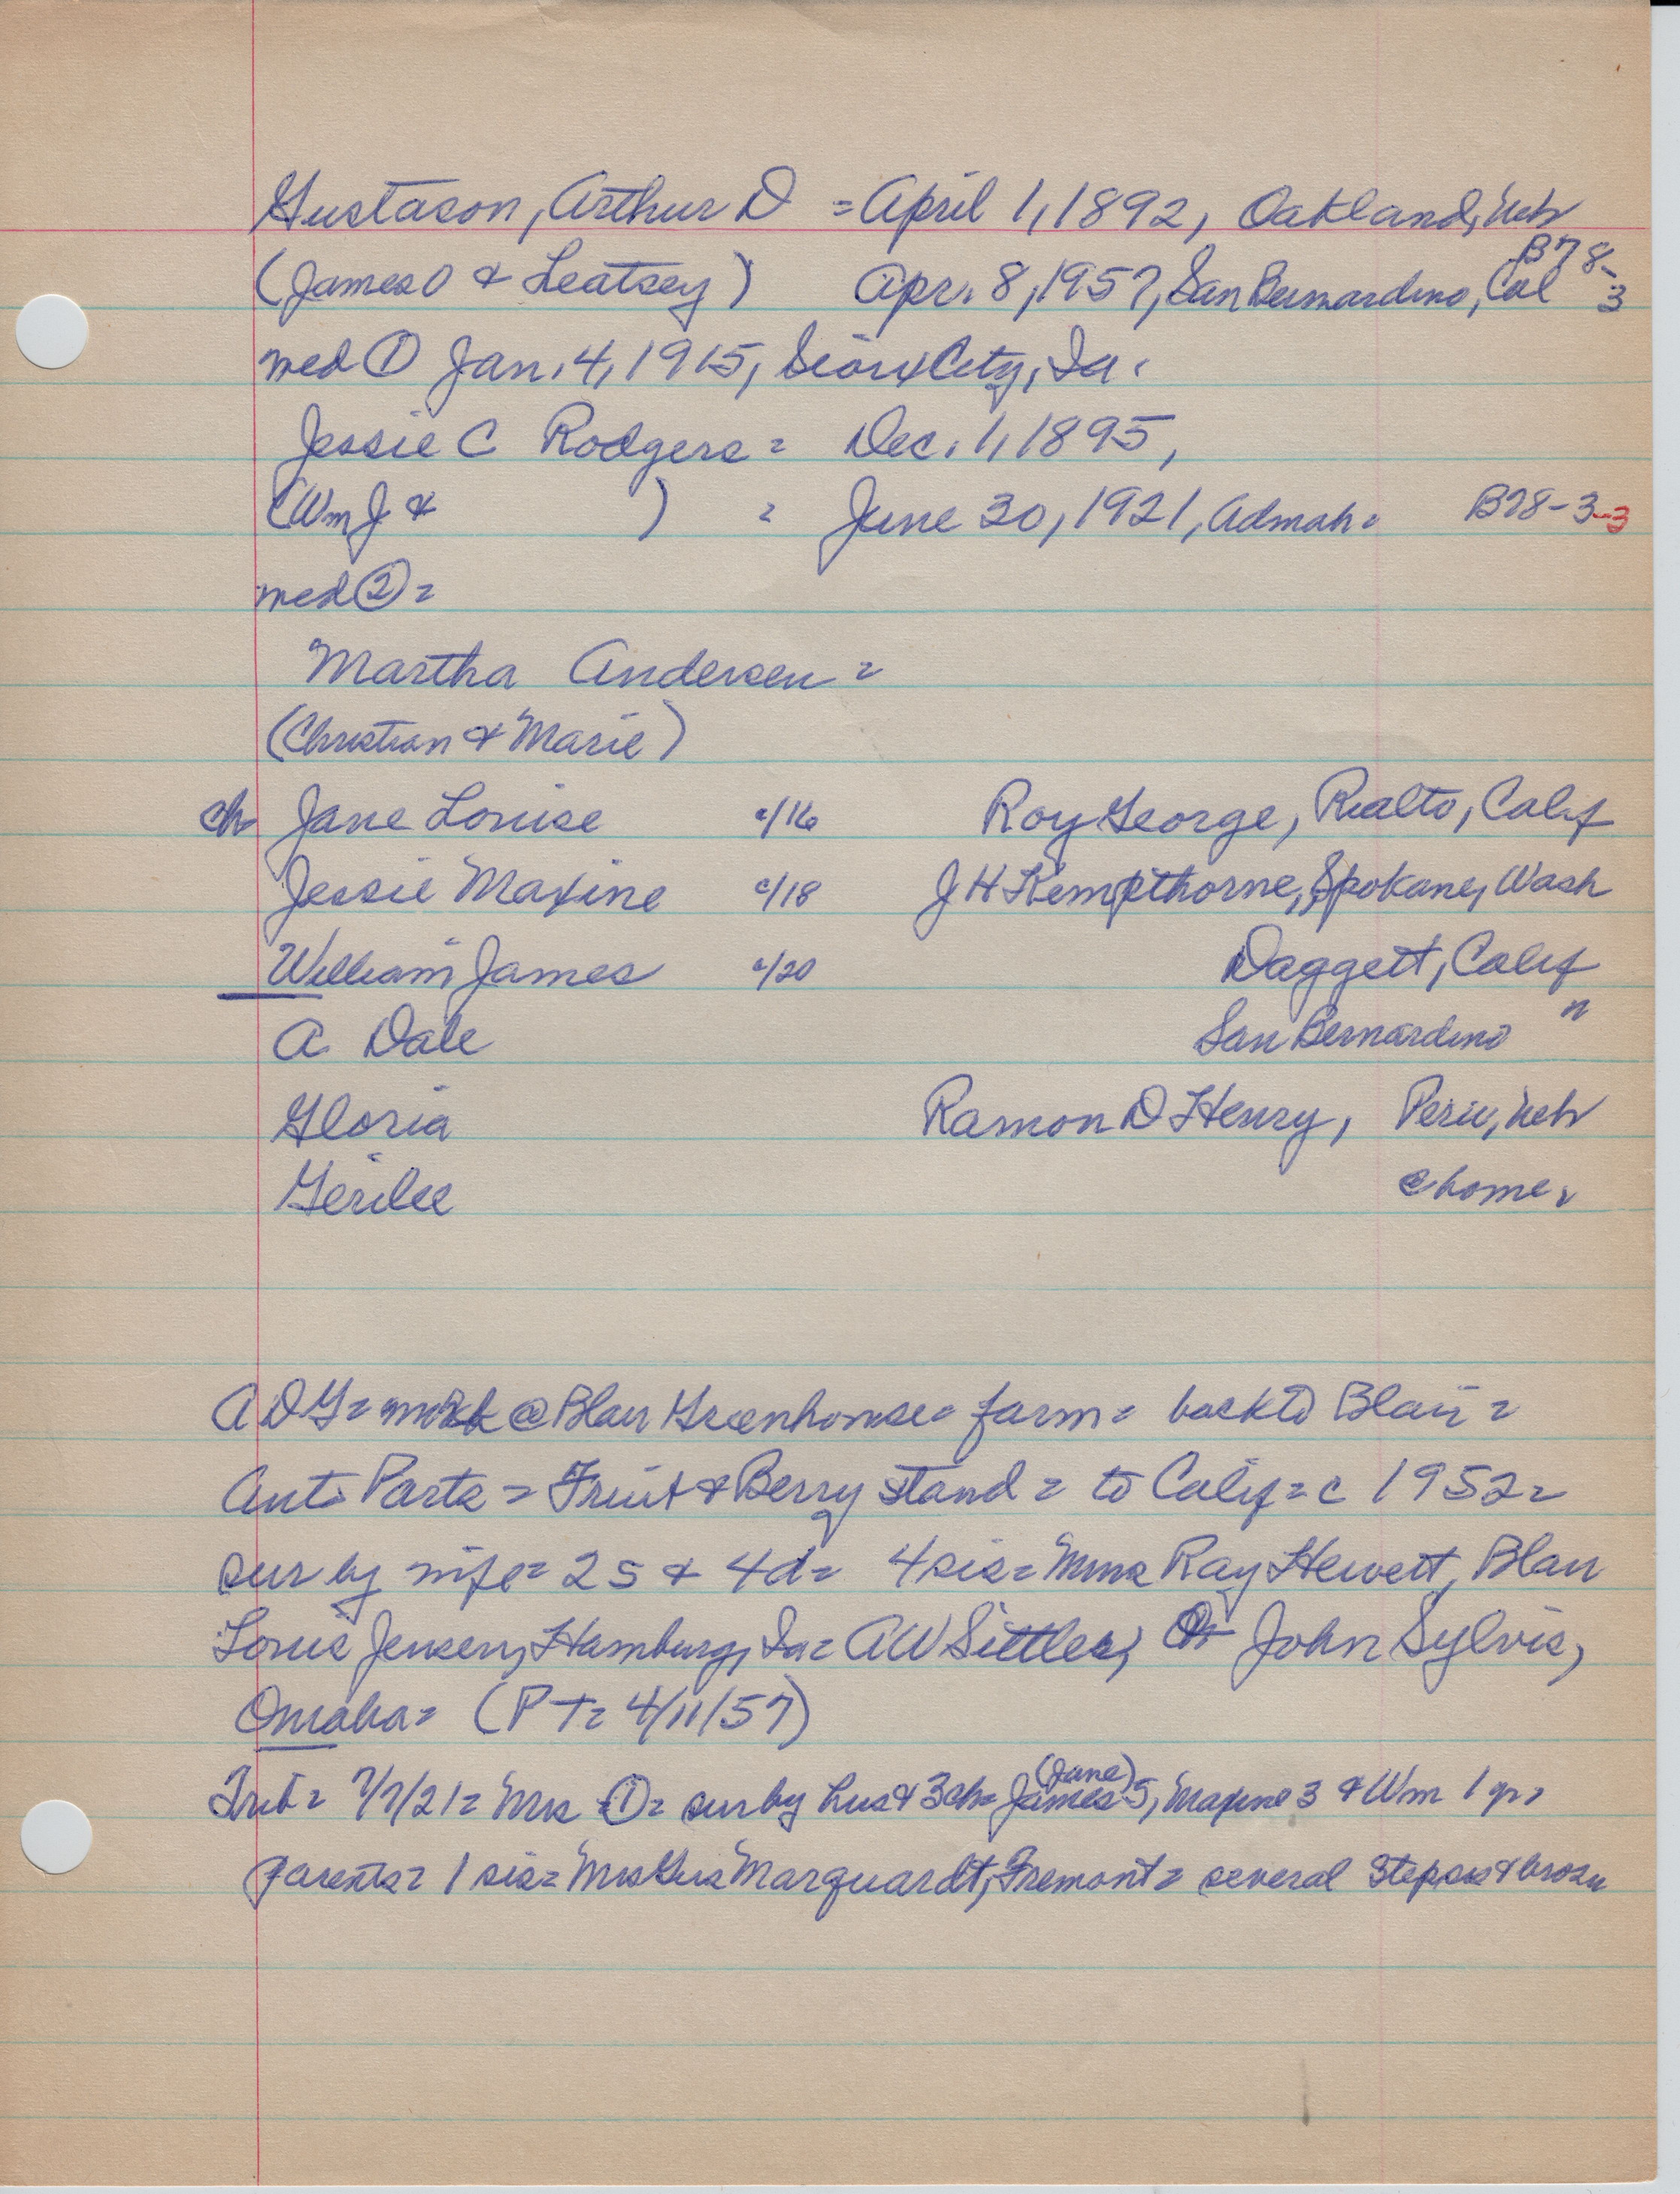 Gustason, Arthur D = April 1, 1892, Oakland, Neb
B78-3
(James O & Leatsey) Apr. 8, 1957, San Bernardino, Cal
med ① Jan. 4, 1915, Sioux City, Ia.
Jessie C Rodgers = Dec. 1, 1895,
(Wm J & ) = June 30, 1921, Admah = B78-3-3
med ② =
Martha Andersen =
(Christian & Marie)
ch Jane Louise c/16 Roy George, Rialto, Calif
Jessie Maxine c/18 J H Kempthorne, Spokane, Wash
William James c/20 Daggett, Calif
A Dale San Bernardino "
Gloria Ramon D Henry, Peru, Neb
Gerilee @ home.
A D G = work @ Blair Greenhouse = farm = back to Blair =
Auto Parts = Fruit & Berry stand = to Calif = c 1952 =
sur by wife = 2 s & 4 d = 4 sis = Mmes Ray Hewett, Blair
Louis Jensen, Hamburg, Ia = A W Sittler, John Sylvis,
Omaha = (P T = 4/11/57)
(Jane)
Trib = 7/7/21 = Mrs ① = sur by hus & 3 ch = James 5, Maxine 3 & Wm 1 yr =
parents = 1 sis = Mrs Gus Marquardt, Fremont = several step sis & bros =